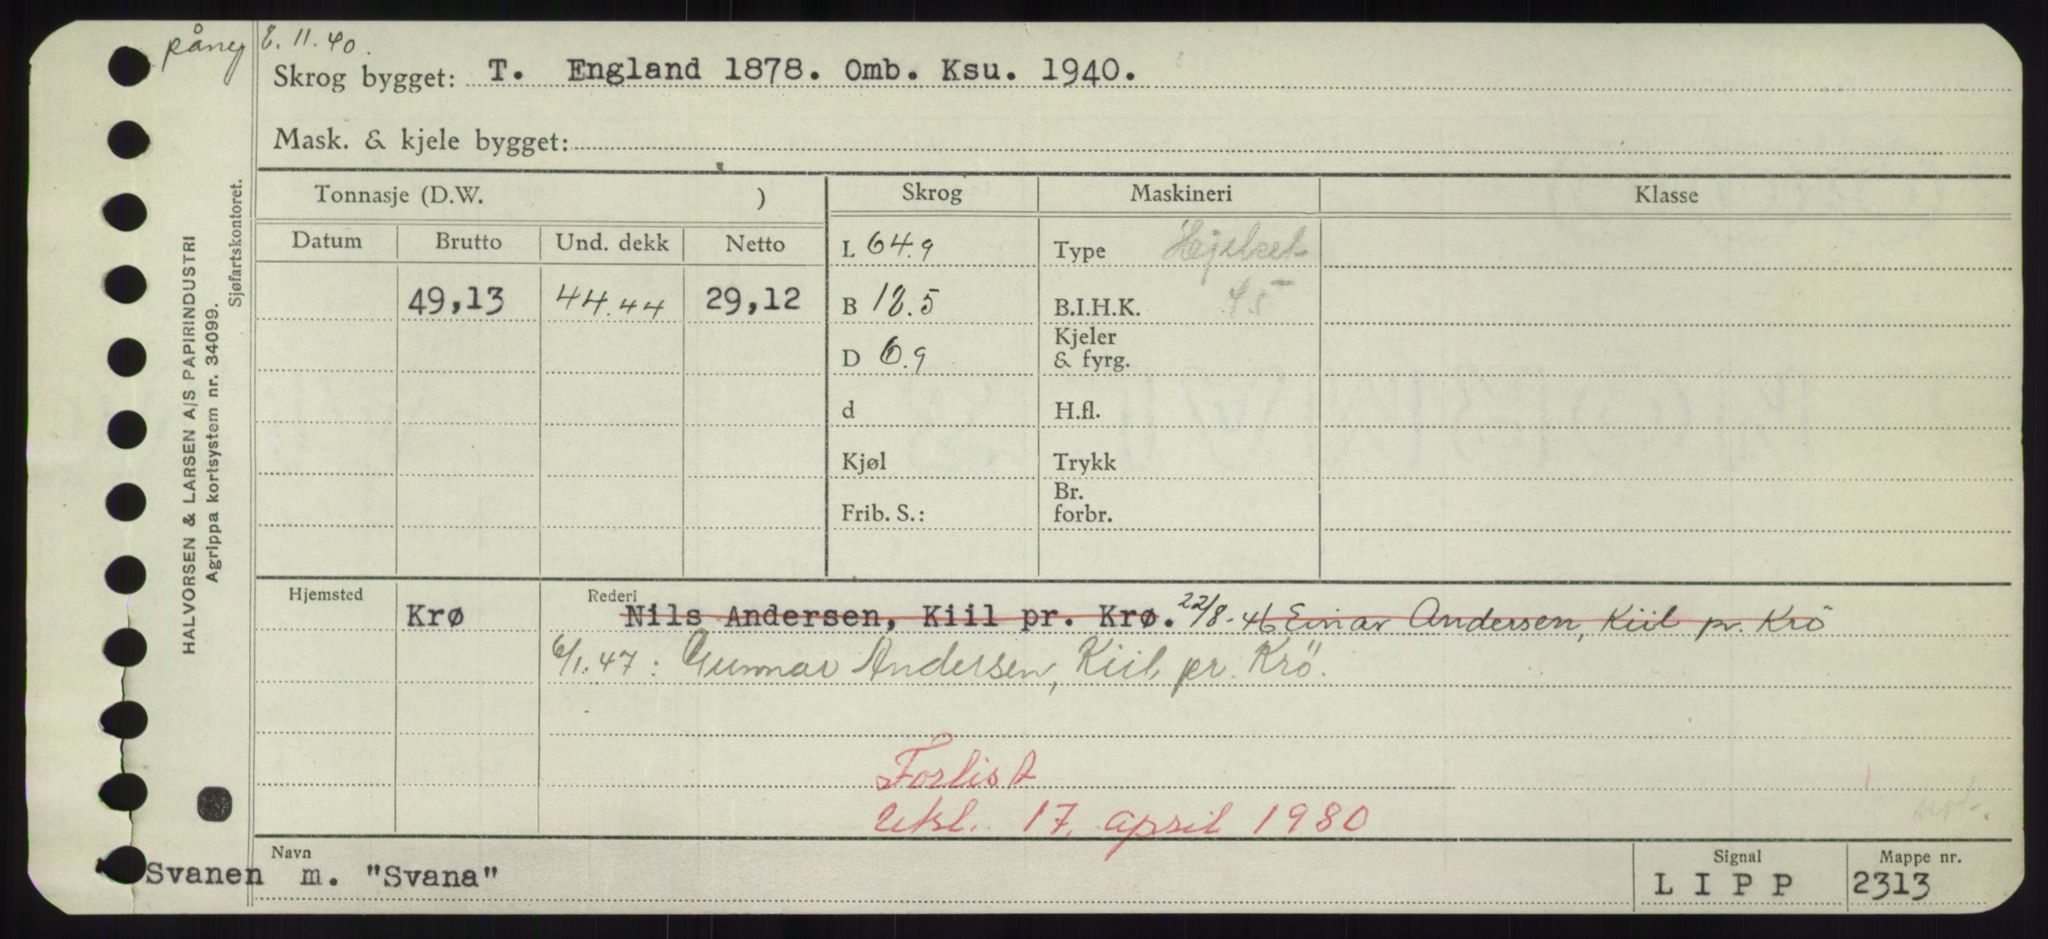 påney 8.11.40.
Skrog bygget: T. England 1878. Omb. Ksu. 1940.
Mask. & kjele bygget:
HALVORSEN & LARSEN A/S PAPIRINDUSTRI
Agrippa kortsystem nr. 34099.
Sjøfartskontoret.
Tonnasje (D.W. ) Skrog Maskineri Klasse
Datum Brutto Und. dekk Netto
L 64.9 Type Hjelset
49,13 44.44 29,12 B 18.5 B.I.H.K. 45
D 6.9 Kjeler & fyrg.
d H.fl.
Kjøl Trykk
Frib. S.: Br. forbr.
Hjemsted Rederi
Krø Nils Andersen, Kiil pr. Krø. 22/8-46 Einar Andersen, Kiil pr. Krö
6/1.47: Gunnar Andersen, Kiil pr. Krö.
Forlist
Uksl. 17. april 1980
not.
Navn Signal Mappe nr.
Svanen m. "Svana" L I P P 2313